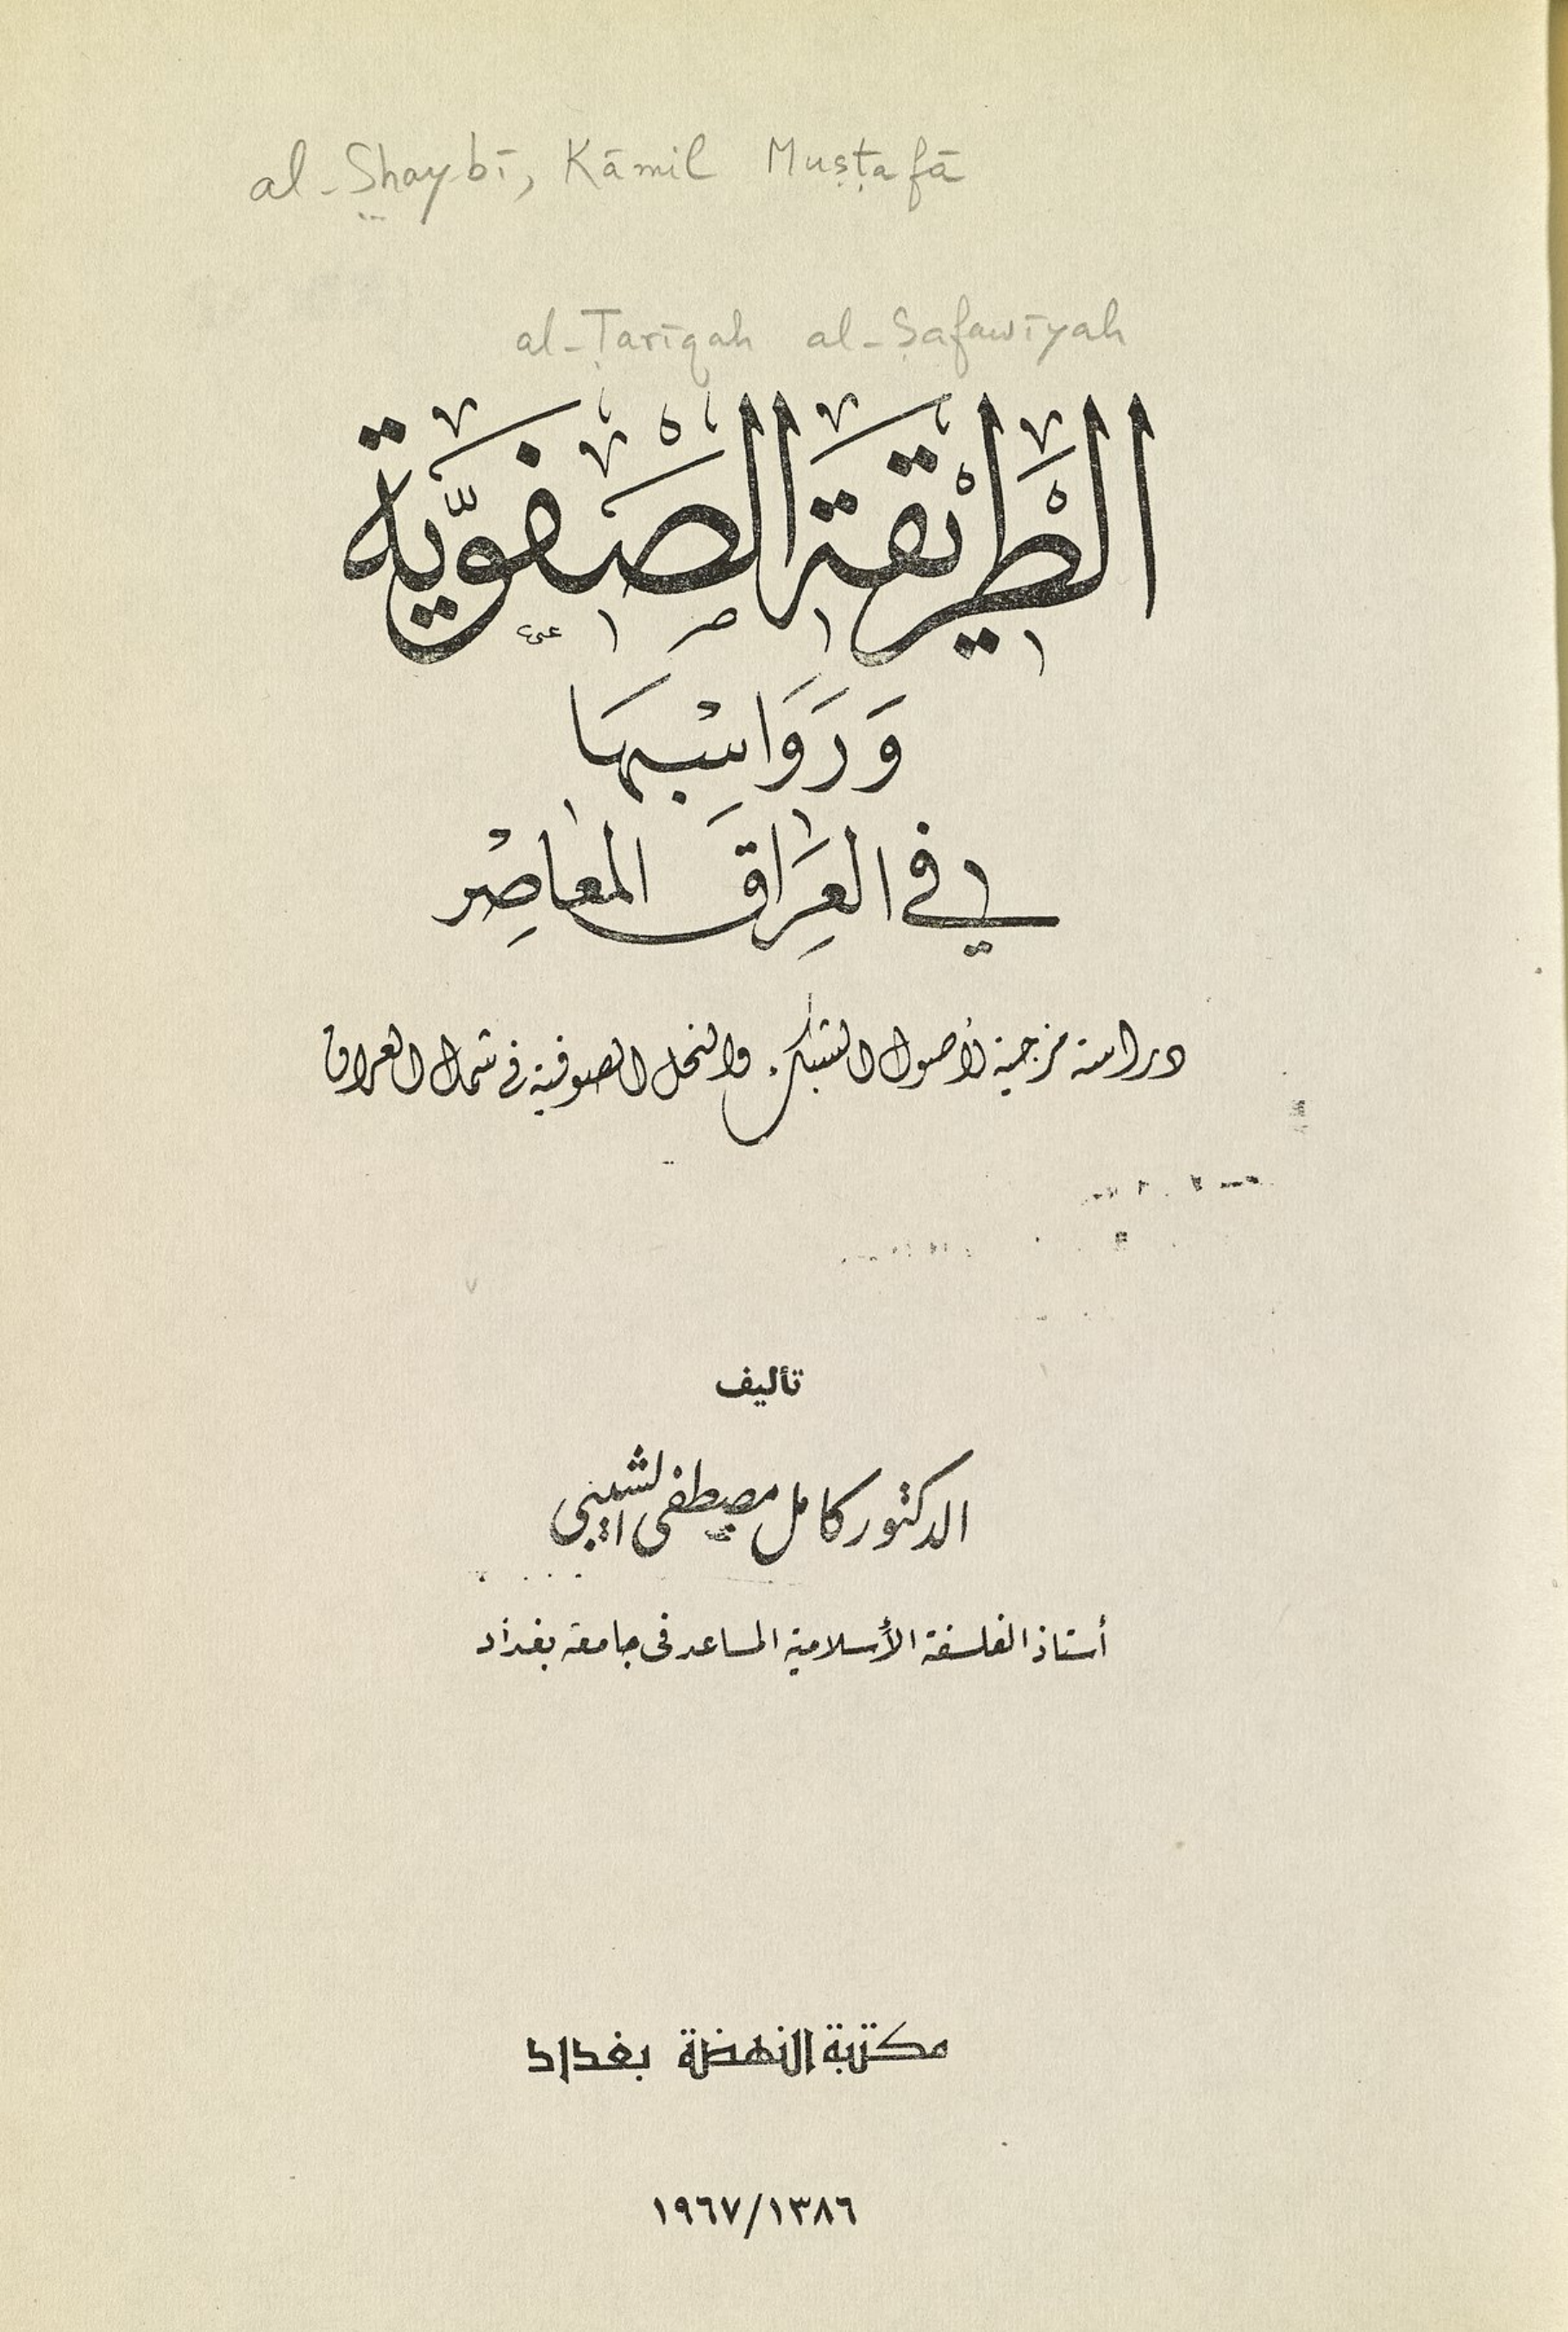 al-Shaybī, Kāmil Muṣṭafā
al-Ṭarīqah al-Ṣafawīyah
الطَّرِيْقَة الصَّفْوِيَّة
وَرَوَاسْبهَا
في العِرَاق المعَاصِرْ
دراسة مزجية لأصول الشبك والنحل الصوفية في شمال العراق
تأليف
الدكتور كامل مصطفى الشيبي
أستاذ الفلسفة الأسلامية المساعد في جامعة بغداد
مكتبة النهضة بغداد
١٣٨٦/١٩٦٧